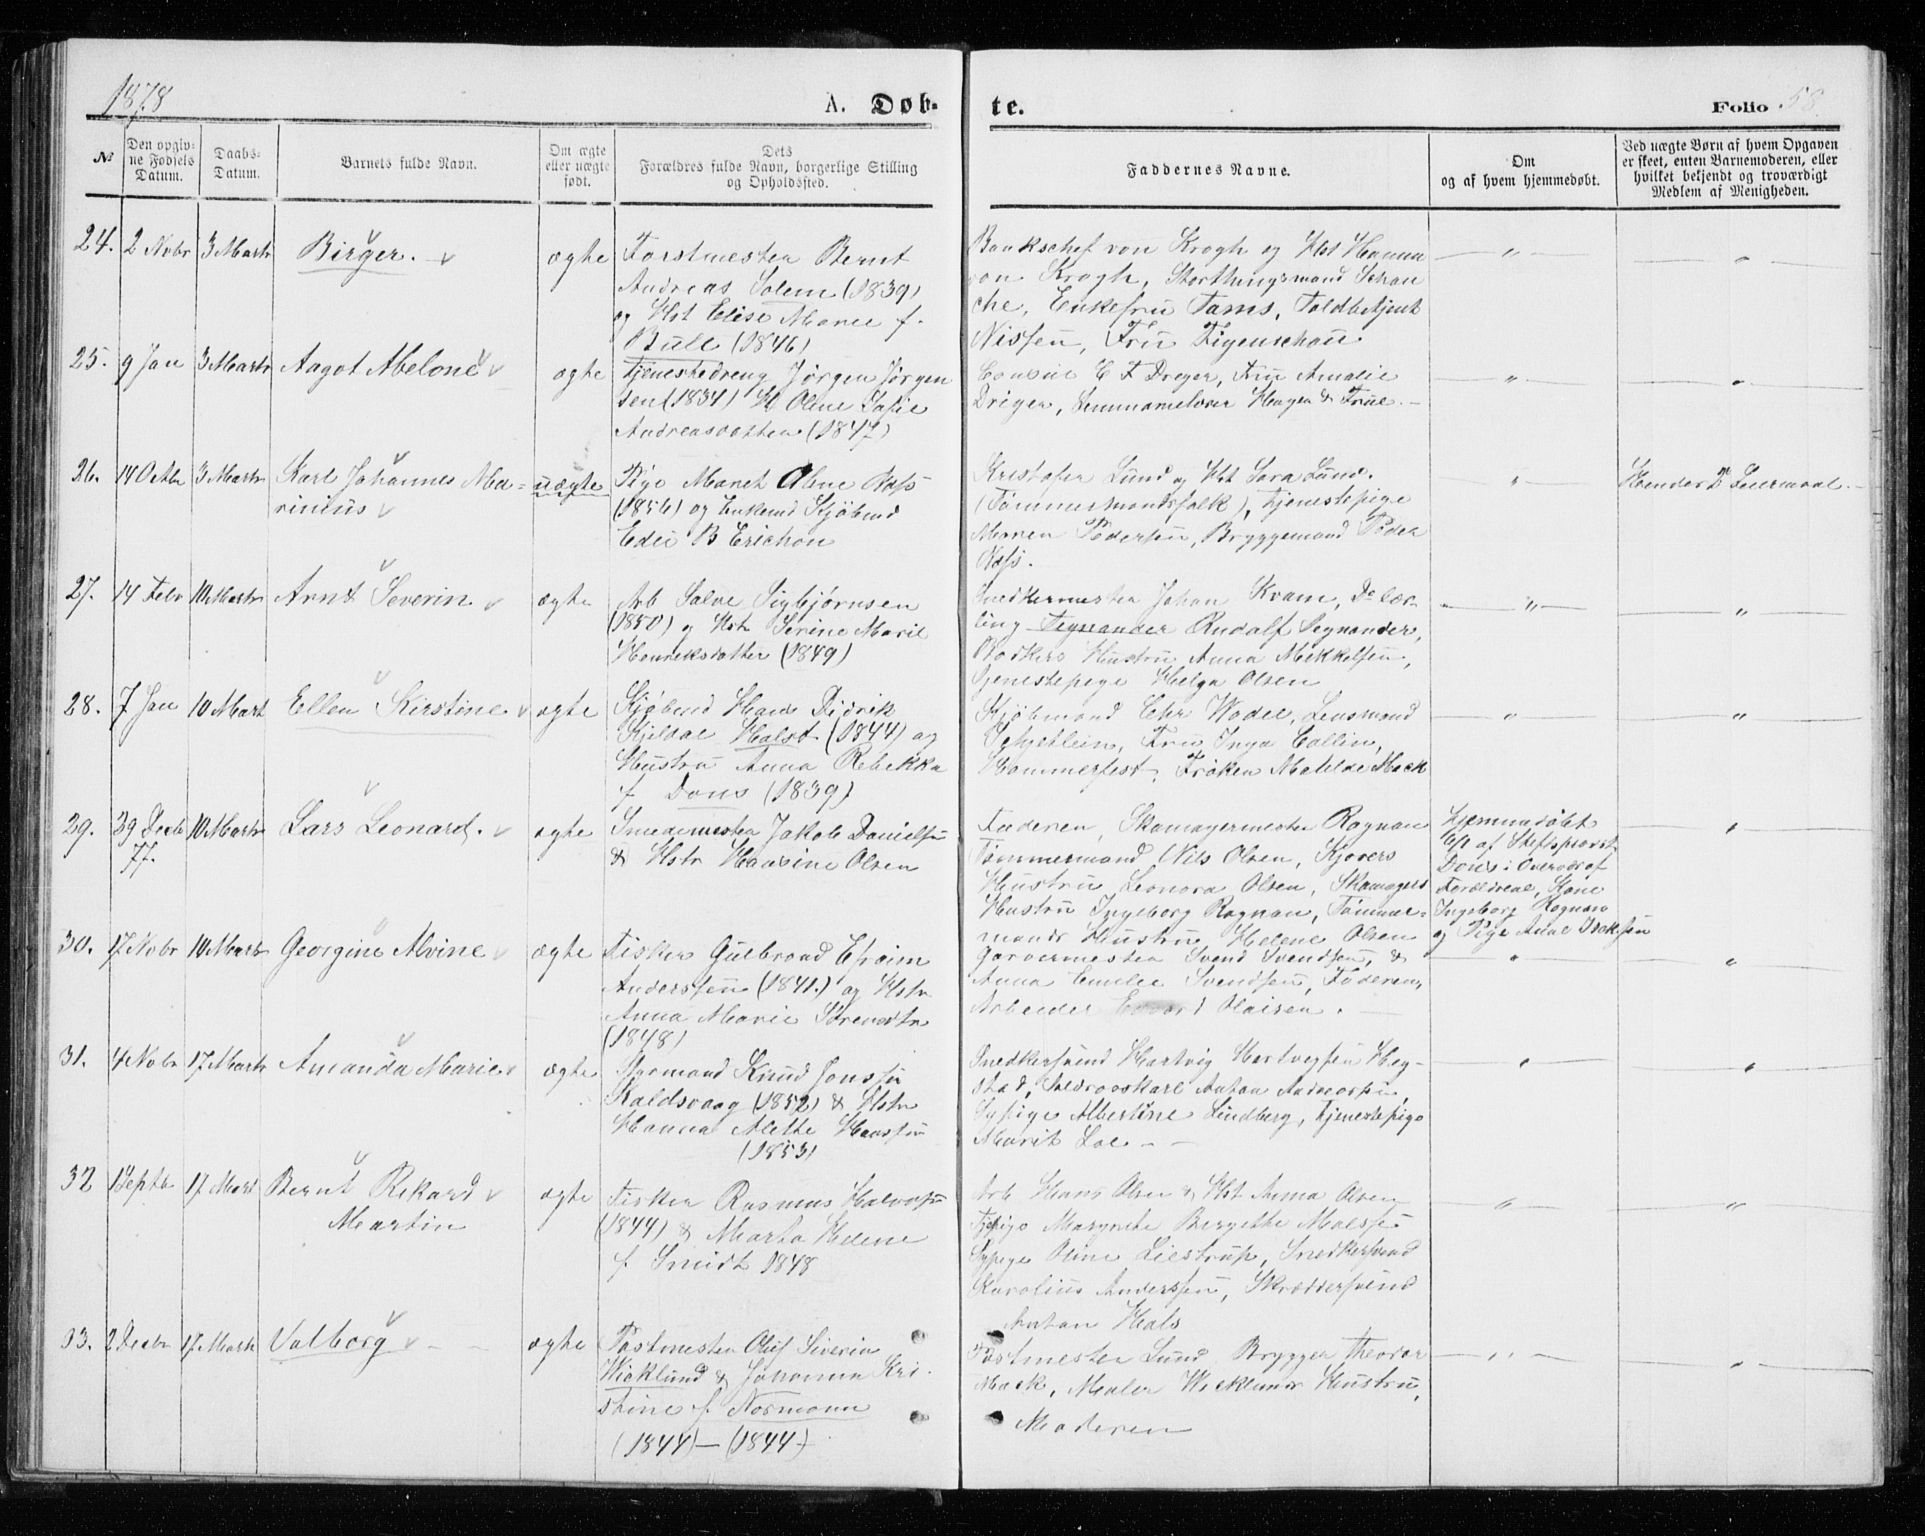 1878
A. Døb-
te.
Folio 58
№
Den opgiv-
ne Fødsels
Datum.
Daabs-
Datum.
Barnets fulde Navn.
Om ægte
eller uægte
født.
Dets
Forældres fulde Navn, borgerlige Stilling
og Opholdssted.
Faddernes Navne.
Om
og af hvem hjemmedøbt.
Ved uægte Børn af hvem Opgaven
er skeet, enten Barnemoderen, eller
hvilket bekjendt og troværdigt
Medlem af Menigheden.
24. 2 Nvbr 3 Marts Birger. ægte
Forstmester Bernt
Andreas Solem (1839)
og Hst Elise Marie f.
Bull (1846)
Bankschef von Krogh og Hst Hanna
von Krogh, Storthingsmand Schan
che, Enkefru Tams, Toldbetjent
Nissen, Fru Figenschou
25. 9 Jan 3 Marts Aagot Abelone ægte
Tjenestedreng Jørgen Jørgen
sen (1834) H Oline Sofie
Andreasdatter (1847)
Consul C F Dreyer, Fru Amalie
Dreyer, Hagen & Frue.
26. 14 Octbr 3 Marts Karl Johannes Ma-
rinius
uægte
Pige Maret Oline Næss
(1856) og Enkemd Kjøbmd
B Erichsen
Kristofer Lund og Hst Sara Lund.
(Tømmermandsfolk), Tjenestepige
Maren Pedersen, Bryggemand Peder
Næss.
Hendes 2d Leiermaal.
27. 14 Febr 10 Marts Arnt Severin ægte
Arb Salve Sigbjørnsen
(1850) og Hst Serine Marie
Henriksdatter (1849)
Snedkermester Johan Kvam, Do lær-
ling Tegnander Rudolf Tegnander,
Bødkers Hustru Anna Mikkelsen,
Tjenestepige Helga Olsen
28. 7 Jan 10 Mart Ellen Kirstine ægte
Kjøbmd Hans Didrik
Kjeldal Halst (1844) og
Hustru Anna Rebekka
f Dons (1839)
Kjøbmand Chr Wadel, Lensmand
Fru Inga Collin,
Hammerfest, Frøken Matilde Mack
29. 29 Decbr
77.
10 Marts Lars Leonard. ægte
Smedemester Jakob Danielsen
& Hstr Hansine Olsen
Faderen, Skomagermester Rognan
Tømmermand Nils Olsen, Kjørers
Hustru Leonora Olsen, Skomagers
Hustru Ingeborg Rognan, Tømmer-
mands Hustru Helene Olsen
Hjemmedøbt
af Stiftsprovst
Dons i Overvær af
Forældrene, Kone
Ingeborg Rognan
og Pige Anne Isaksen
30. 17 Nvbr 10 Marts Georgine Alvine ægte
Fisker Gulbrand Efraim
Anderssen (1841.) og Hstr
Anna Marie Sørensdtr
(1848)
Garvermester Svend Svendsen, &
Anna Emilie Svendsen, Faderen,
Arbeider Edvard Olaisen.
31. 4 Nvbr 17 Marts Amanda Marie ægte
Styrmand Knud Jonssen
Kaldsvaag (1852) & Hstr
Hanna Alette Hanssen
(1853)
Snedkersvend Hartvig Hartvigsen Heg-
stad, Anton Andreassen,
Sypige Albertine Lindberg, Tjenestepige
Marit Loe
32 1 Septbr 17 Mart Bernt Rikard
Martin
ægte
Fisker Rasmus Halvorsen
(1844) & Marta Helene
f. Smidt 1848
Arb Hans Olsen & Hst Anna Olsen
Tjpige Margrete Bergitte
Sypige Oline Liestrup, Snedkersvend
Karolius Anderssen, Skræddersvend
Anton Hals
33. 2 Decbr 17 Marts Valborg ægte
Postmester Oluf Siverin
Wicklund & Johanna Kri-
stine f. Normann
(1844) — (1844)
Postmester Lund, Brygger Theodor
Mack, Maler Wicklunds Hustru,
Moderen